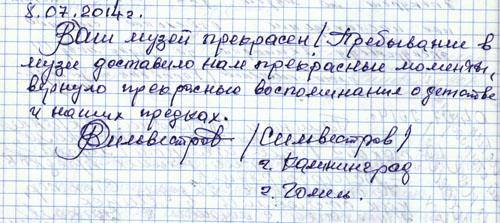 8.07.2014г.
Ваш музей прекрасен! Пребывание в
музее доставило нам прекрасные моменты,
вернуло прекрасные воспоминания о детстве
и наших предках.
/Сильвестров/
г. Калининград
г. Гомель.